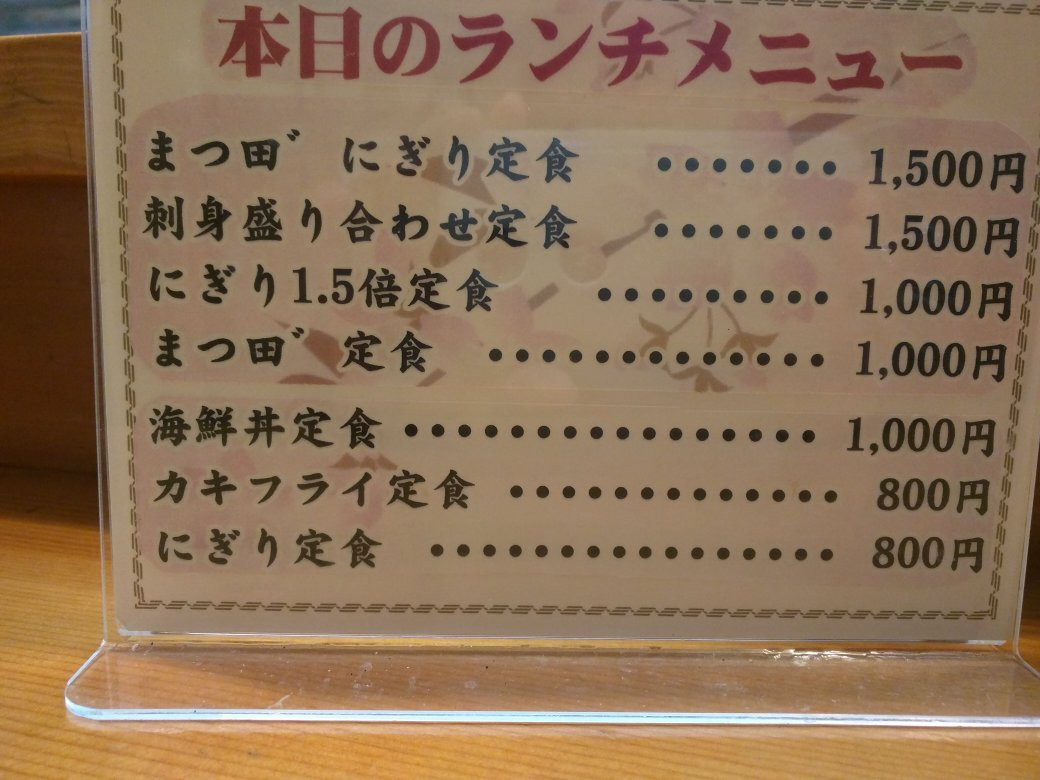 本日のランチメニュー
まつ田゛ にぎり定食 ••••••• 1,500円
刺身盛り合わせ定食 ••••••• 1,500円
にぎり1.5倍定食 ••••••••• 1,000円
まつ田゛ 定食 ••••••••••••• 1,000円
海鮮丼定食 •••••••••••••••• 1,000円
カキフライ定食 ••••••••••••• 800円
にぎり定食 •••••••••••••••• 800円